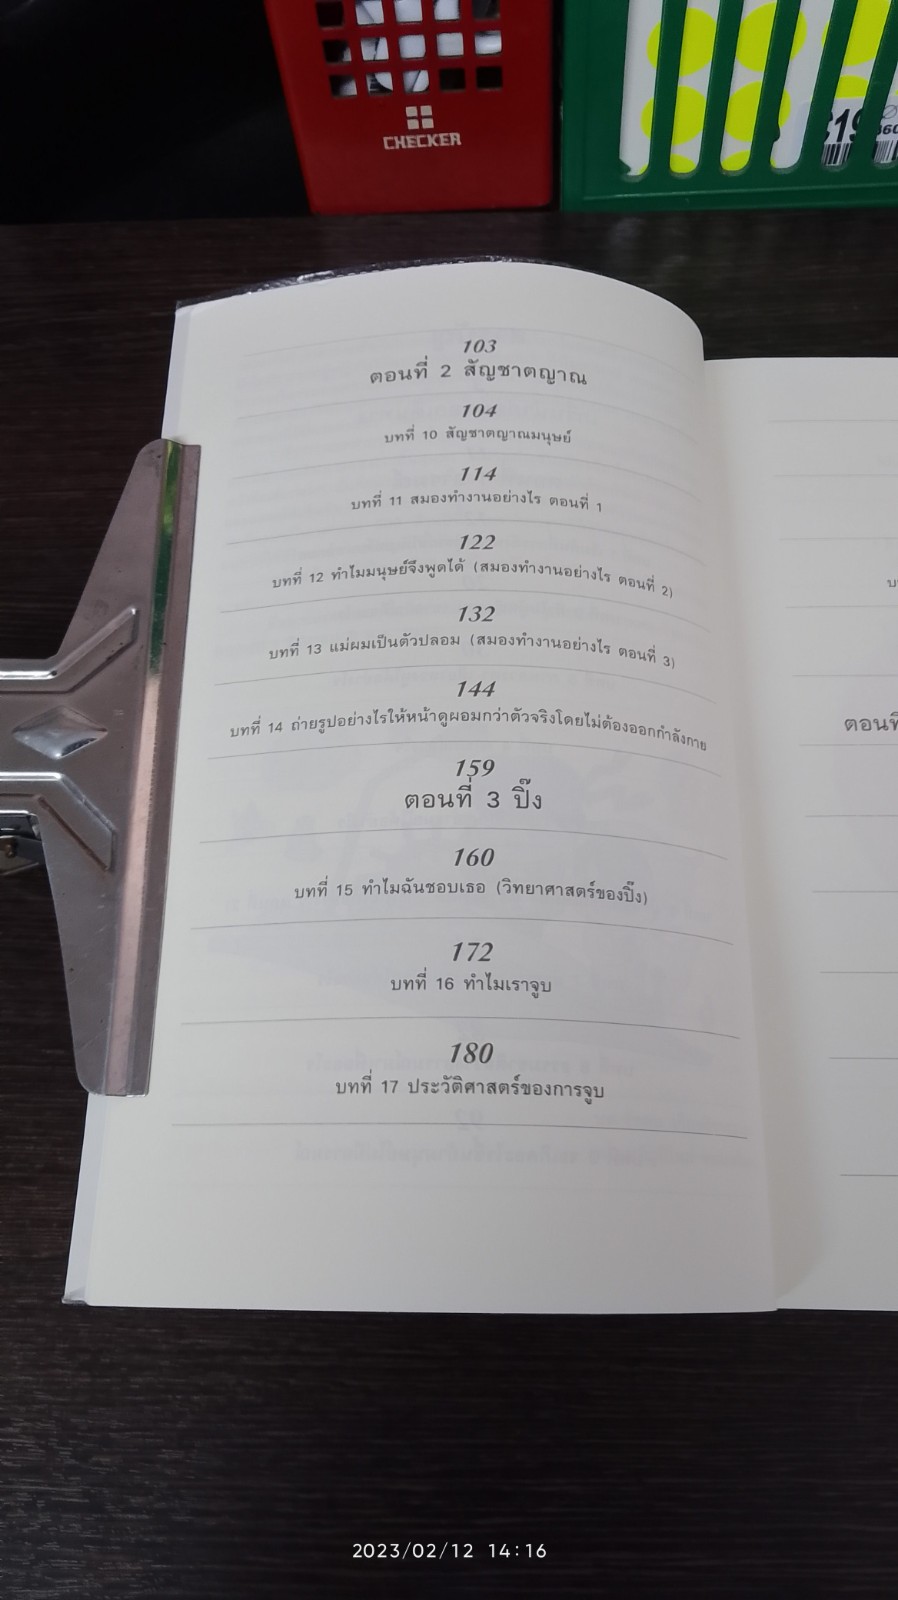 CHECKER
103
ตอนที่ 2 สัญชาตญาณ
104
บทที่ 10 สัญชาตญาณมนุษย์
114
บทที่ 11 สมองทำงานอย่างไร ตอนที่ 1
122
บทที่ 12 ทำไมมนุษย์จึงพูดได้ (สมองทำงานอย่างไร ตอนที่ 2)
132
บทที่ 13 แม่ผมเป็นตัวปลอม (สมองทำงานอย่างไร ตอนที่ 3)
144
บทที่ 14 ถ่ายรูปอย่างไรให้หน้าดูผอมกว่าตัวจริงโดยไม่ต้องออกกำลังกาย
159
ตอนที่ 3 ปิ๊ง
160
บทที่ 15 ทำไมฉันชอบเธอ (วิทยาศาสตร์ของปิ๊ง)
172
บทที่ 16 ทำไมเราจูบ
180
บทที่ 17 ประวัติศาสตร์ของการจูบ
2023/02/12 14:16